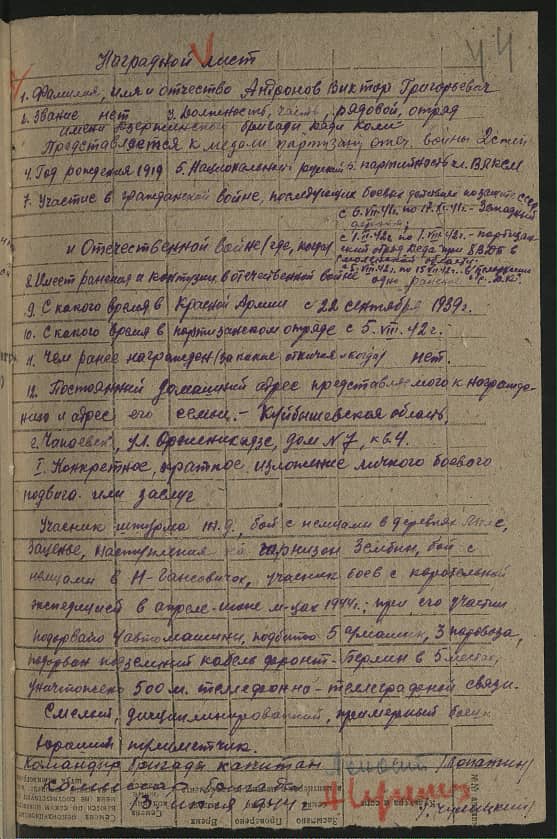 4 4
Наградной лист
1. Фамилия, имя и отчество Андронов Виктор Григорьевич
2. Звание нет 3. Должность, часть, рядовой, отряд
имени Дзержинского бригады дяди Коли
Представляется к медали партизану отеч. войны 2 степ
4. Год рождения 1919 5. Национальность русский 6. партийность чл. ВЛКСМ
7. Участие в гражданской войне, последующих боевых действиях по защите СССР
с 6.VII-41г. по 17.X-41г. - Западный
фронт;
с 1.II-42г. по 1.VII.42г. - партизан
и Отечественной войне/где, когда/ ский отряд Деда при 8 ВДБ в
Смоленской области;
с 5.VIII.42г. по 15.VII.44г. в
8. Имеет ранения и контузии в отечественной войне одно ранение
9. С какого время в Красной Армии с 22 сентября 1939г.
10. С какого время в партизанском отряде с 5.VIII.42г.
11. Чем ранее награжден/за какие отличия и когда/ нет.
12. Постоянный домашний адрес представляемого к награжде-
нию и адрес его семьи. - Куйбышевская область,
г. Чапаевск, ул. Орженикидзе, дом №7, кв.4.
I. Конкретное, краткое изложение личного боевого
подвига или заслуг
Учасник штурма ж.д., бой с немцами в деревнях
Заценье, наступления на гарнизон Зембин, бой с
немцами в Н-Гансовичах, учасник боев с карательной
экспедицией в апреле-июне м-цах 1944г.; при его участии
подорвано 4 автомашины, подбито 5 армашин, 3 паровоза,
подорван подземный кабель фронт-Берлин в 5 местах,
уничтожено 500 м. телефонно-телеграфной связи.
Смелый, дисциплинированный, примерный боец
хороший пулеметчик.
Командир бригады капитан /Лопатин/
Комиссар бригады
13 июля 1944г.